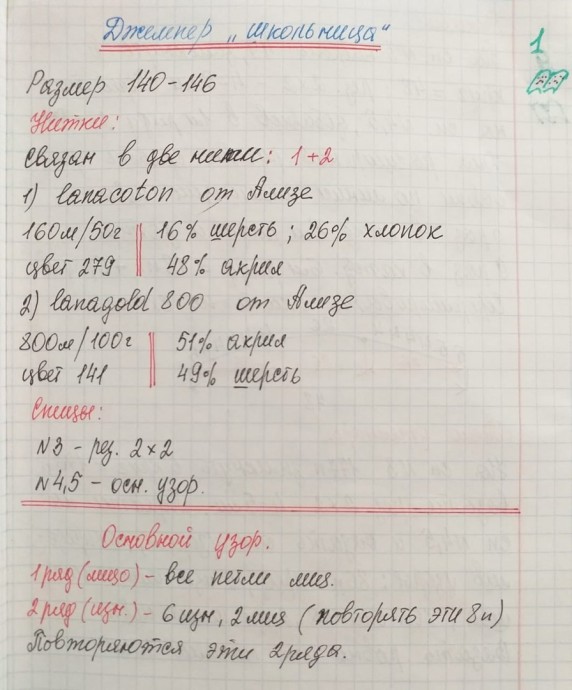 Джемпер „школьница“
1
Размер 140-146
Нитки:
Связан в две нитки: 1+2
1) lanacoton от Ализе
160м/50г 16% шерсть; 26% хлопок
цвет 279 48% акрил
2) lanagold 800 от Ализе
800м/100г 51% акрил
цвет 141 49% шерсть
Спицы:
N3 - рез. 2×2
N4,5 - осн. узор.
Основной узор.
1 ряд (лицо) - все петли лиц.
2 ряд (изн.) - 6 изн, 2 лиц (повторять эти 8 п)
Повторяются эти 2 ряда.